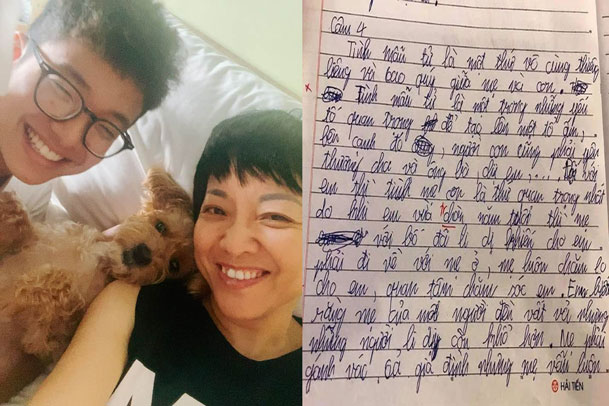 Câu 4
Tình mẫu tử là một thứ vô cùng thiêng
liêng và bao quý giữa mẹ và con.
Tình mẫu tử là một trong những yếu
tố quan trọng để tạo lên một tổ ấm,
bên cạnh đó, người con cũng phải yêu
thương cha và ông bà chị em,... với
em thì tình mẹ con là thứ quan trọng nhất
do khi em vừa tròn năm tuổi thì mẹ
với bố đã li dị khiến cho em
phải đi về với mẹ ở mẹ luôn chăm lo
cho em, quan tâm chăm sóc em. Em biết
rằng mẹ của một người đều vất vả nhưng
những người li dị còn khổ hơn. Mẹ phải
gánh vác cả gia định nhưng mẹ vẫn luôn
HẢI TIẾN